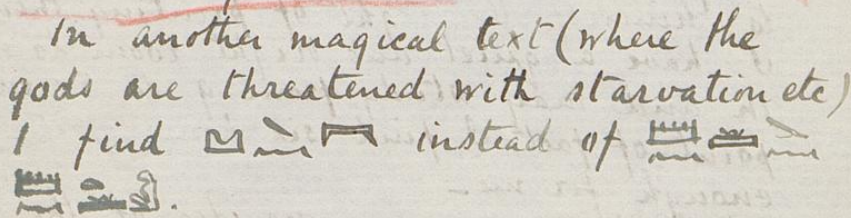 In another magical text (where the
gods are threatened with starvation etc)
I find instead of
.